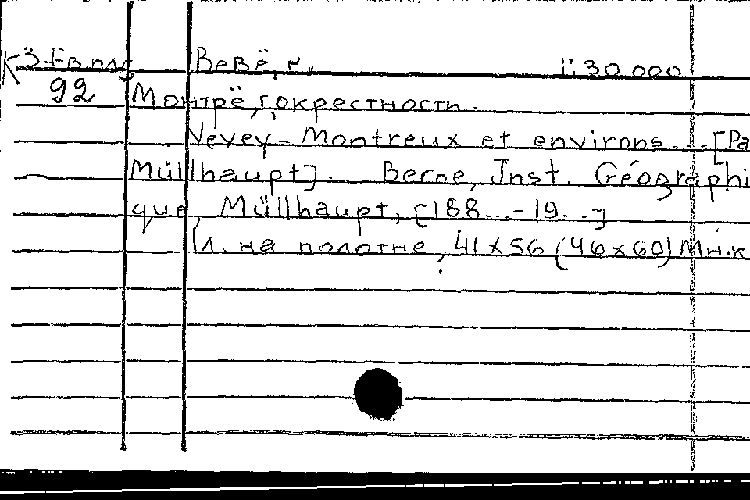 К 3-Европ Веве, г. 1:30.000
92 Монтрё, г., окрестности.
Vevey-Montreux et environs... [Pa
Müllhaupt]. Berne, Inst. Géographi
que, Müllhaupt, [188...-19...]
1 л. на полотне, 41x56 (46x60) Мн.к